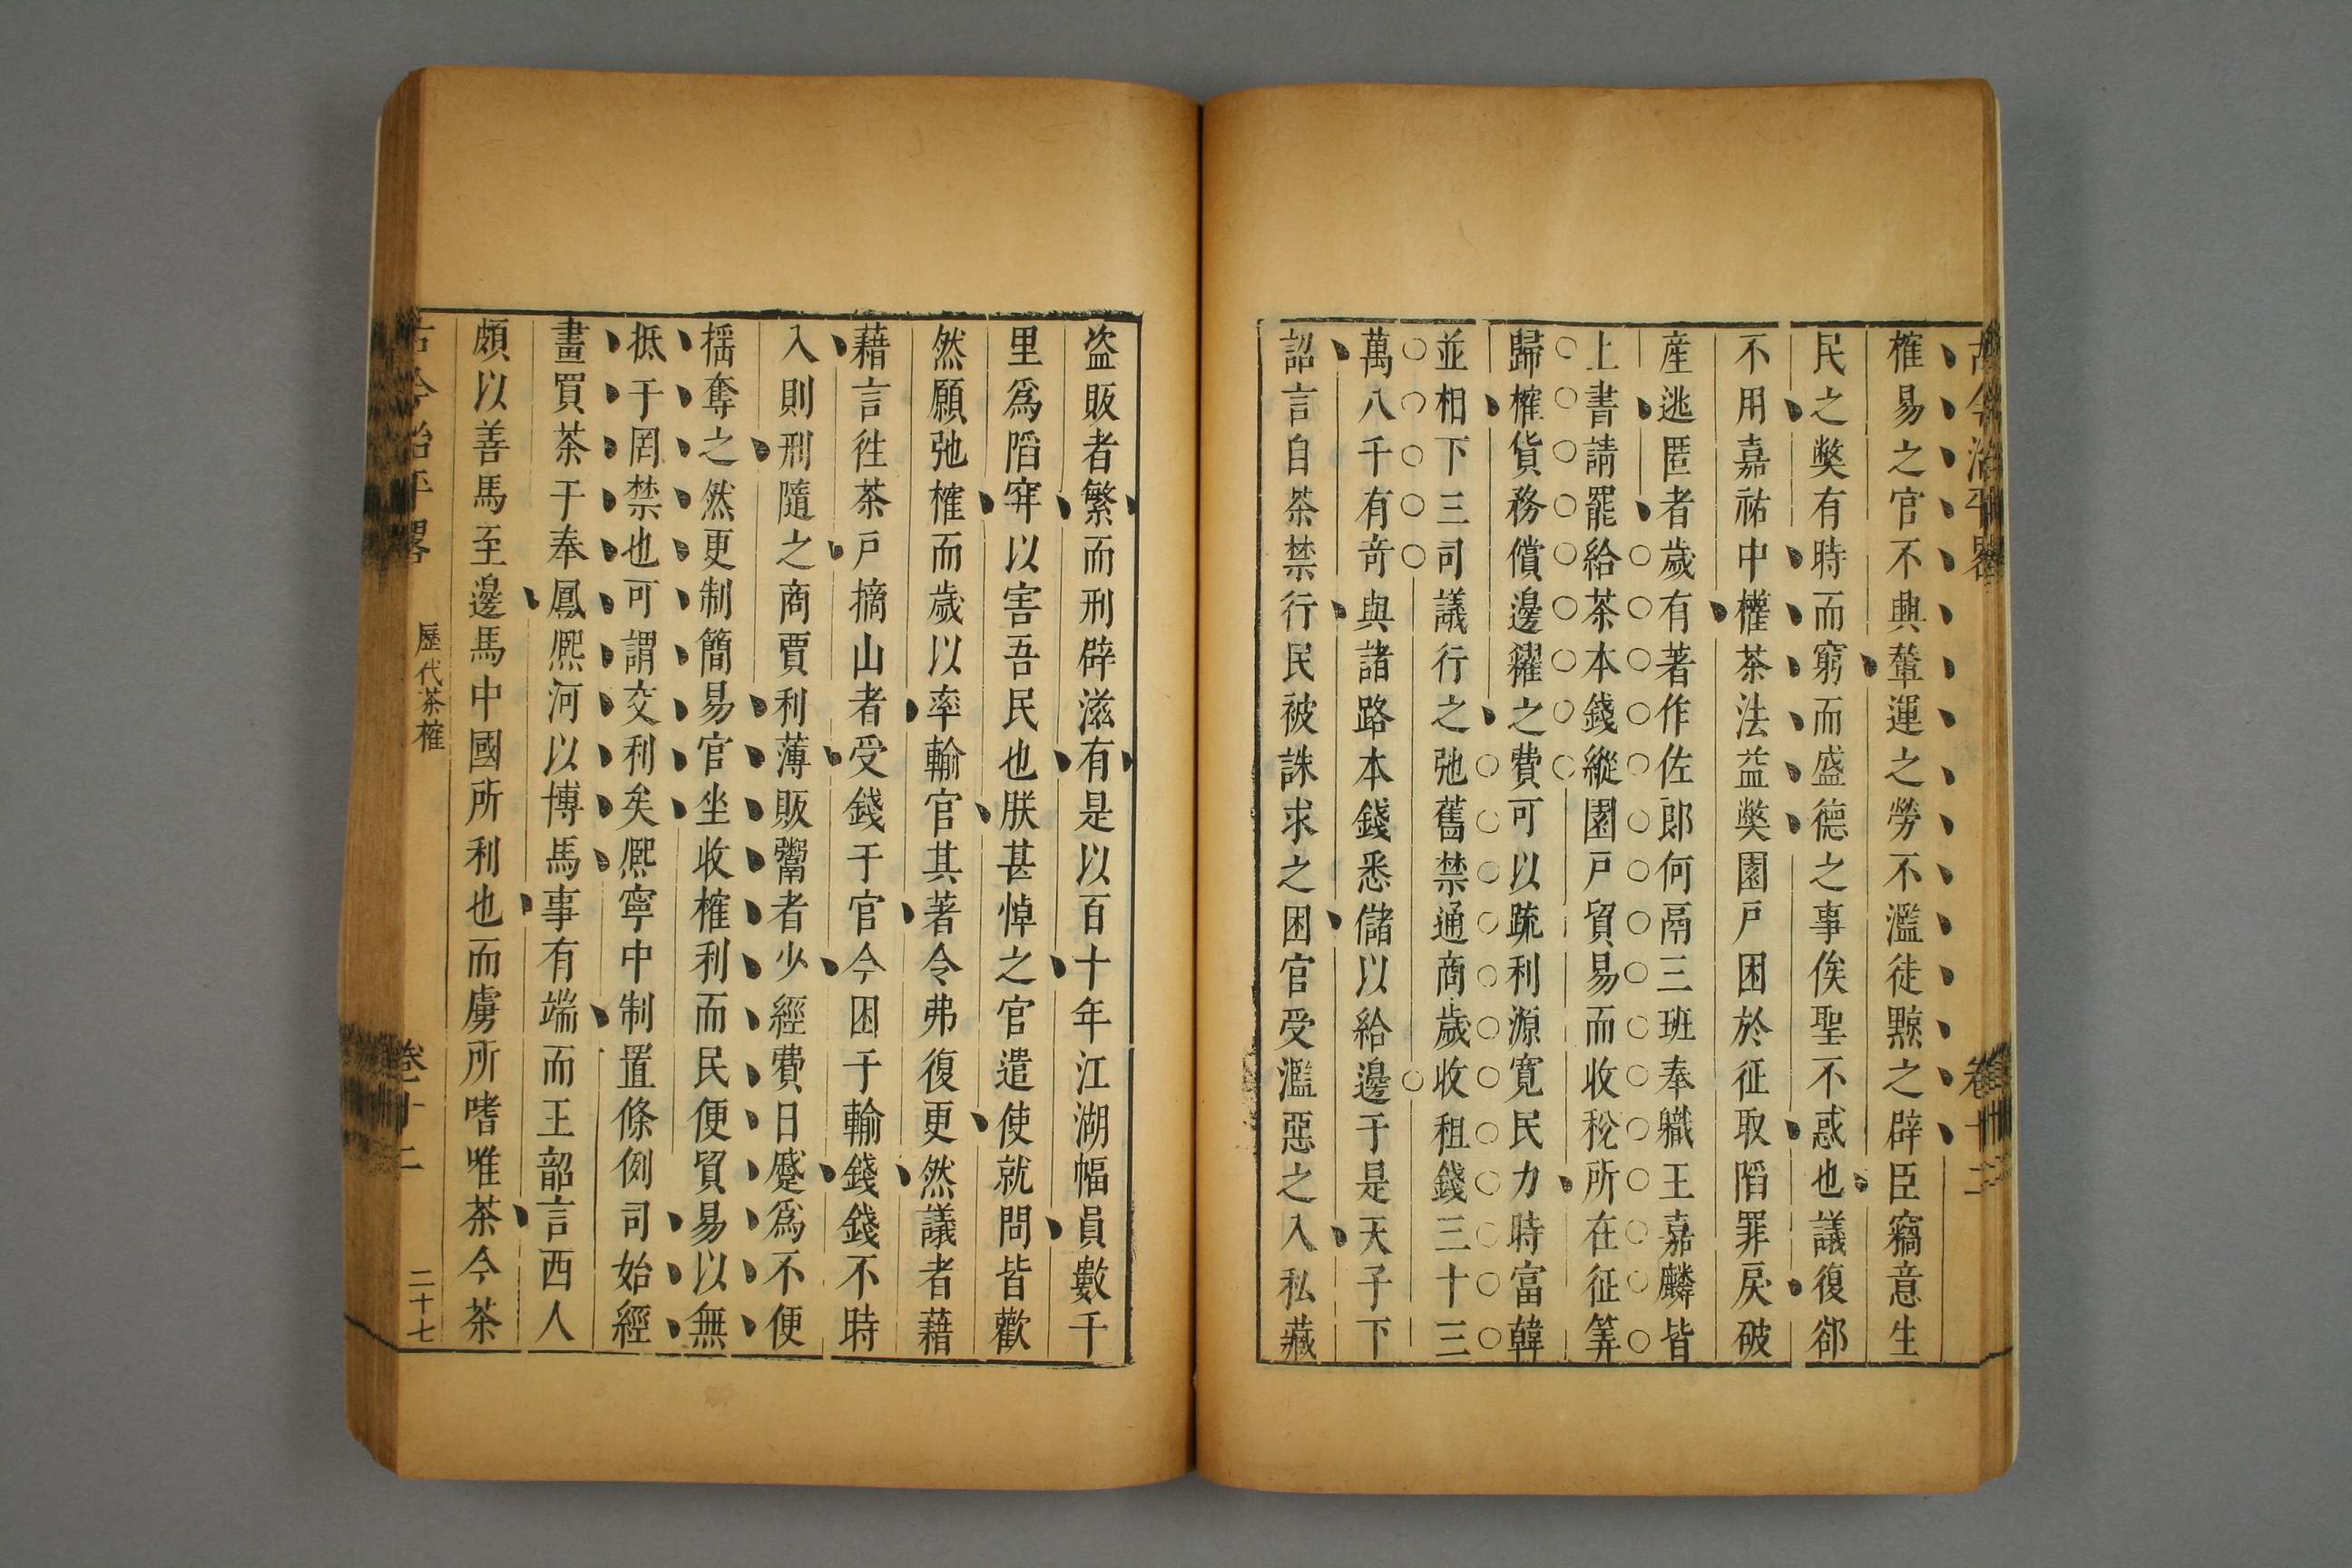 古今治平畧 卷十二
榷易之官不興輦運之勞不濫徒黥之辟臣竊意生
民之獘有時而窮而盛德之事俟聖不惑也議復郤
不用嘉祐中權茶法益獘園戸困於征取陷罪戾破
産逃匿者歲有著作佐郎何鬲三班奉職王嘉麟皆
上書請罷給茶本錢縱園戸貿易而收稅所在征筭
歸榷貨務償邊糴之費可以疏利源寛民力時富韓
並相下三司議行之弛舊禁通商歲收租錢三十三
萬八千有奇與諸路本錢悉儲以給邊于是天子下
詔言自茶禁行民被誅求之困官受濫惡之入私藏
盜販者繁而刑辟滋有是以百十年江湖幅員數千
里爲陷穽以害吾民也朕甚悼之官遣使就問皆歡
然願弛榷而歲以率輸官其著令弗復更然議者藉
藉言徃茶戸摘山者受錢于官今困于輸錢錢不時
入則刑隨之商賈利薄販鬻者少經費日蹙爲不便
揺奪之然更制簡易官坐收榷利而民便貿易以無
抵于罔禁也可謂交利矣熈寧中制置條例司始經
畫買茶于奉鳳熈河以博馬事有端而王韶言西人
頗以善馬至邊馬中國所利也而虜所嗜唯茶今茶
古今治平畧 歷代茶榷 卷十二 二十七